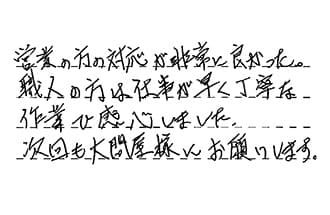 営業の方の対応が非常に良かった。
職人の方は仕事が早く丁寧な
作業で感心しました。
次回も大問屋様にお願いします。